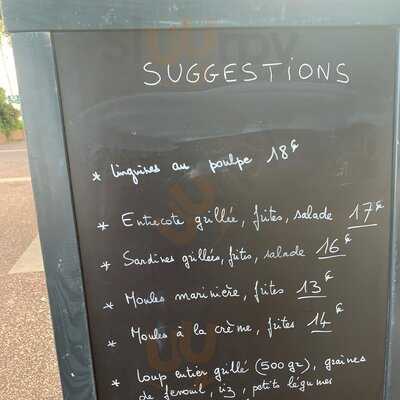 SUGGESTIONS
* linguines au poulpe 18€
* Entrecote grillée, frites, salade 17€
* Sardines grillées, frites, salade 16€
* Moules marinière, frites 13€
* Moules à la crème, frites 14€
* Loup entier grillé (500gr), graines
de fenouil, riz, petits légumes